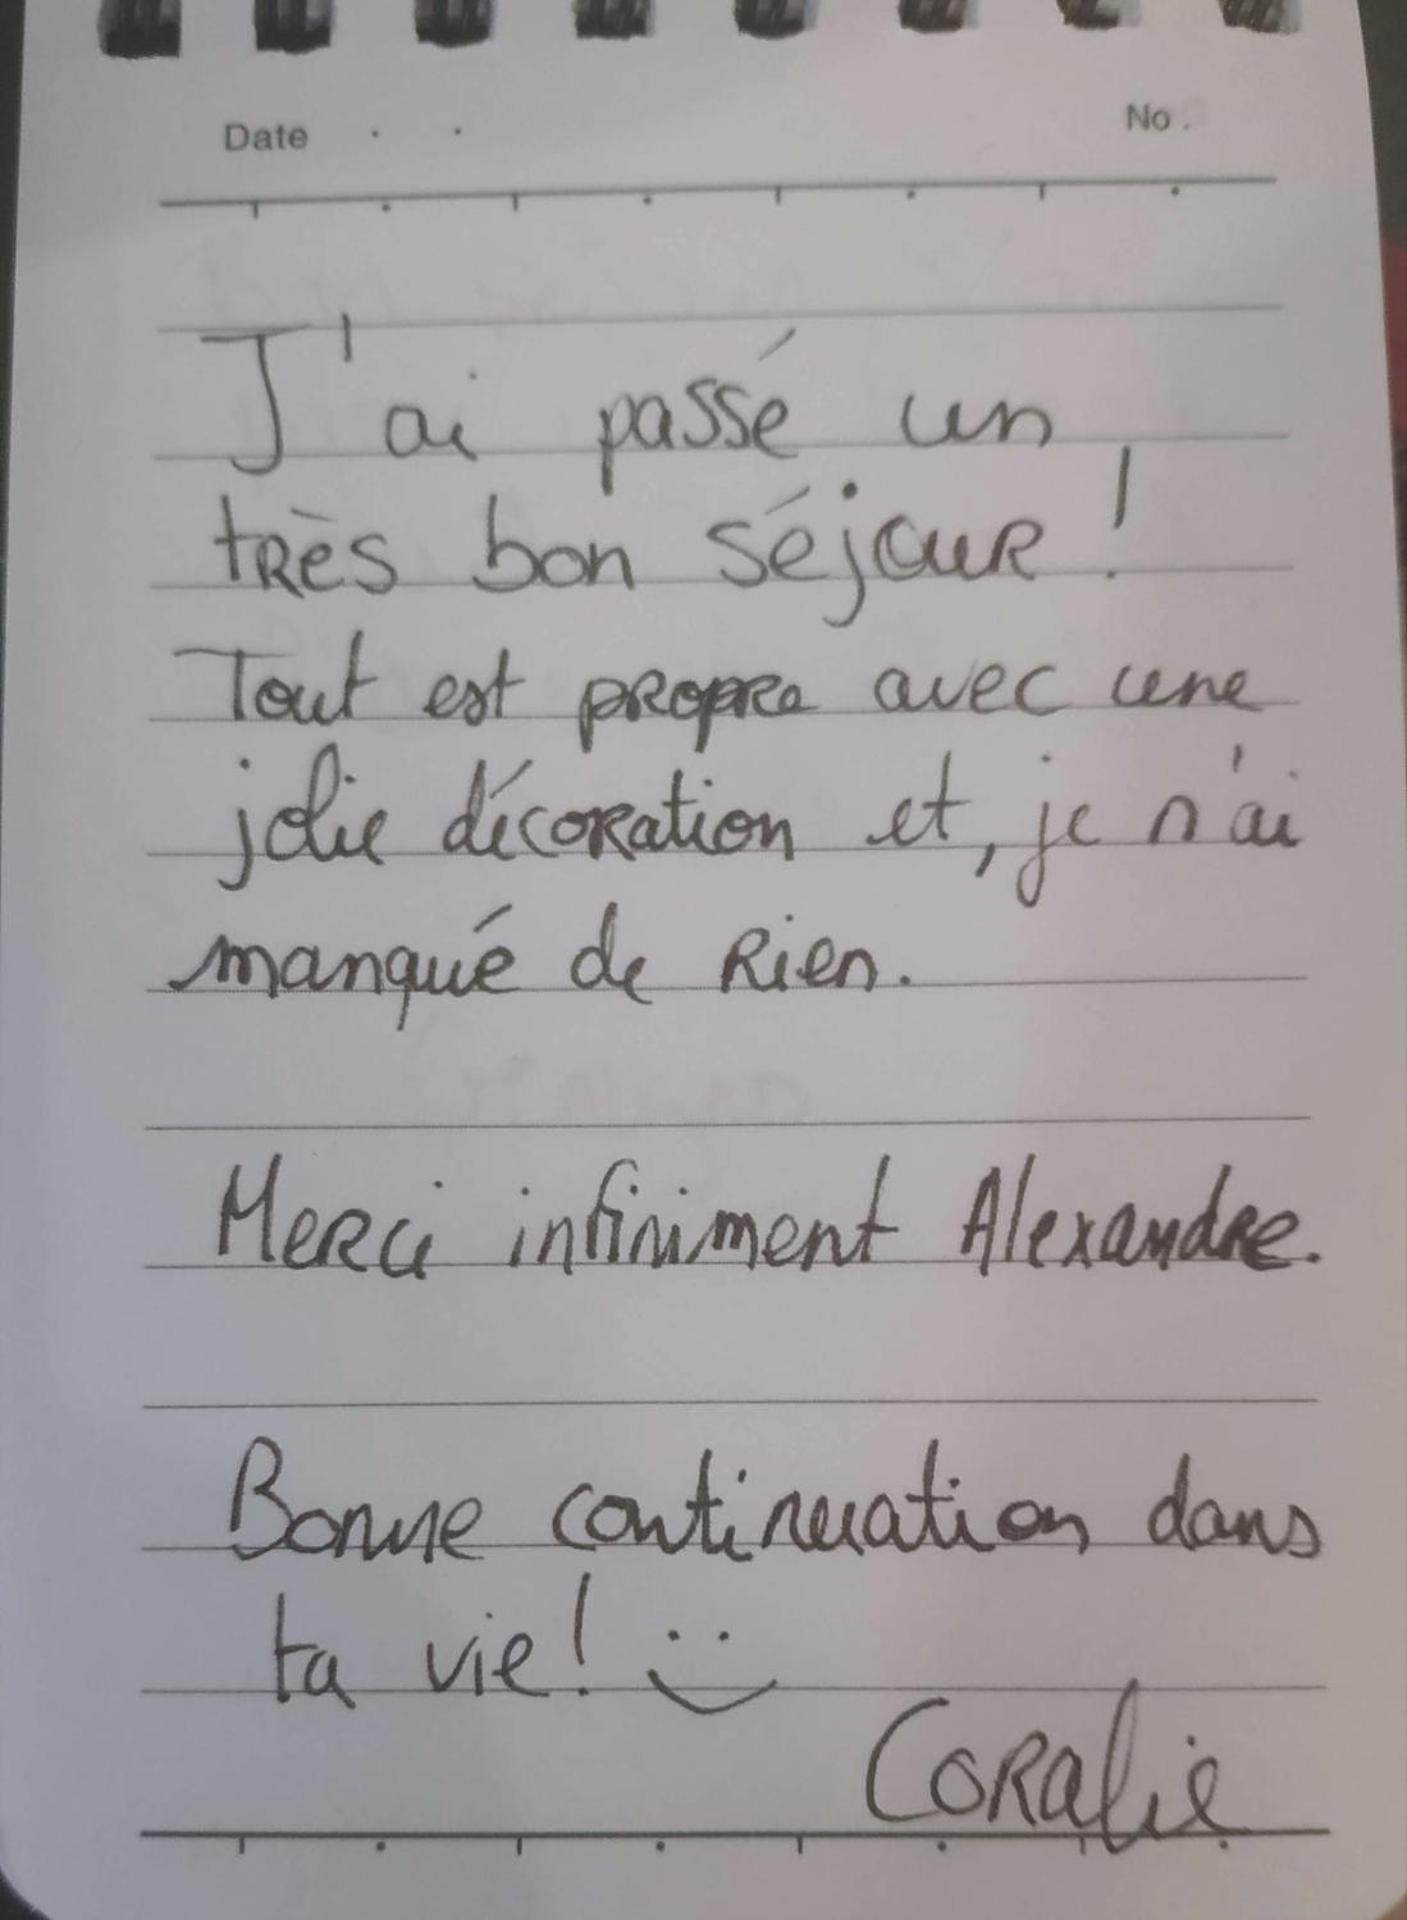 Date . .
No.
J'ai passé un
très bon séjour !
Tout est propre avec une
jolie décoration et, je n'ai
manqué de rien.
Merci infiniment Alexandre.
Bonne continuation dans
ta vie ! :)
Coralie